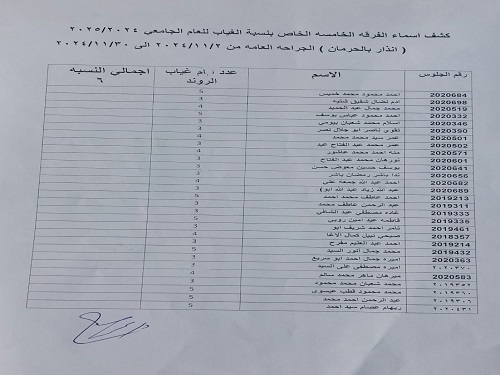 كشف اسماء الفرقه الخامسه الخاص بنسبة الغياب للعام الجامعى ٢٠٢٥/٢٠٢٤
( انذار بالحرمان ) الجراحه العامه من ٢٠٢٤/١١/٢ الى ٢٠٢٤/١١/٣٠
رقم الجلوس الاسم عدد ايام غياب الروند اجمالى النسبه ٦
2020684 احمد محمود محمد خميس 5
2020698 ادم نضال شفيق شتيه 3
2020519 محمد جمال عبد الحميد 4
2020332 احمد محمود عباس يوسف 5
2020346 اسلام محمد شعبان بيومى 3
2020390 تقوى ناصر ابو جلال نصر 4
2020501 عمر سيد محمد محمد
2020502 عمر محمد عبد الفتاح عبد
2020571 منه احمد محمد عاشور
2020601 نورهان محمد عبد الفتاح
2020641 يوسف حسين معوض حسن
2020656 ندا ياسر رمضان ياسر
2020682 احمد عبد الله جمعه على
2020689 عبد الله زياد عبد الله ابو
2019213 احمد عاطف محمد احمد
2019311 عبد الرحمن عاطف محمد
2019333 غاده مصطفى عبد الشافى
2019335 فاطمه عبد امين روبى
2019461 تامر احمد شريف ابو
2018357 صبحى نبيل كمال الاغا
2019214 احمد عبد العليم مفرح
2019432 محمد جمال انور السيد
2020363 اميره جمال احمد ابو سريع
٢٠٢٠٣٧٠ اميره مصطفى على السيد
2020583 ميرهان ماهر محمد سالم
٢٠١٩٣٥٢ محمد شعبان محمد محمود
٢٠١٩٣٦٠ محمد محمود قطب عيسوى
٢٠١٩٣٠٦ عبد الرحمن احمد محمد
٢٠٢٠٤٣١ ريهام عصام سيد احمد 5